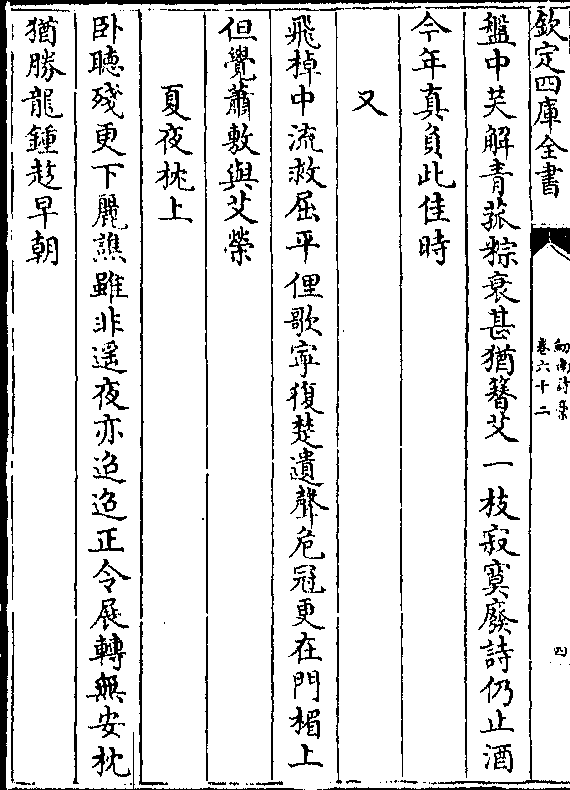 欽定四庫全書
劒南詩槀
卷六十二
四
盤中共解青菰粽衰甚猶簪艾一枝寂寞廢詩仍止酒
今年真負此佳時
又
飛棹中流救屈平俚歌寜復楚遺聲危冠更在門楣上
但覺蕭敷與艾榮
夏夜枕上
卧聴殘更下麗譙雖非遥夜亦迢迢正令展轉無安枕
猶勝龍鍾趂早朝